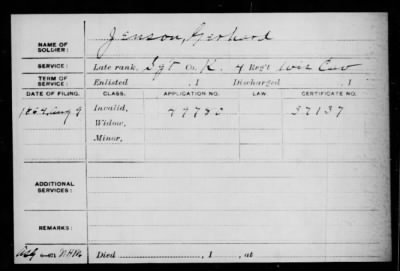 Jenson, Gerhard
NAME OF SOLDIER:
SERVICE: Late rank, Sgt Co. K, 4 Reg't Wis Cav
TERM OF SERVICE: Enlisted , 1 Discharged , 1
DATE OF FILING. CLASS. APPLICATION NO. LAW. CERTIFICATE NO.
1864, Aug 9 Invalid, 49782 37137
Widow,
Minor,
ADDITIONAL SERVICES:
REMARKS:
Died , 1 , at